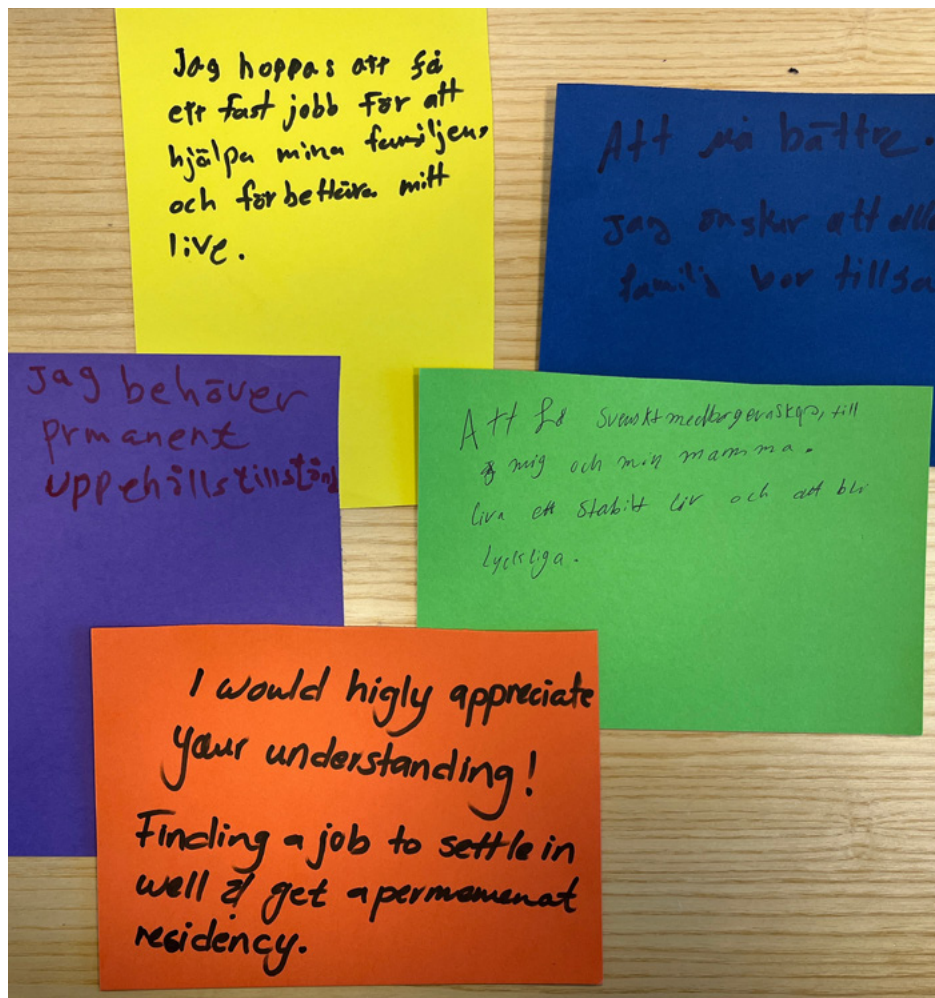 Jag hoppas att få
ett fast jobb för att
hjälpa mina familjen
och förbettära mitt
live.
Att må bättre.
jag önskar att
familj bor
Jag behöver
prmanent
uppehållstillstånd
Att få svenskt medborgerskap, till
mig och min mamma.
liva ett stabilt liv och att bli
lyckliga.
I would higly appreciate
your understanding!
Finding a job to settle in
well & get a permemenat
residency.